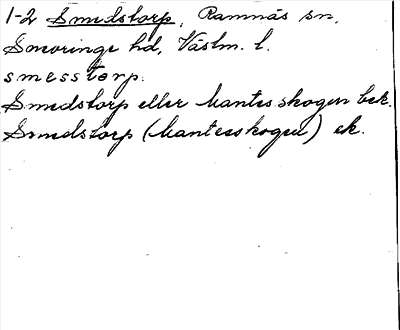 1-2 Smedstorp, Ramnäs sn,
Snevringe hd, Västm. l.
smesstårp.
Smedstorp eller Mantesskogen bek.
Smedstorp (Mantesskogen) ek.